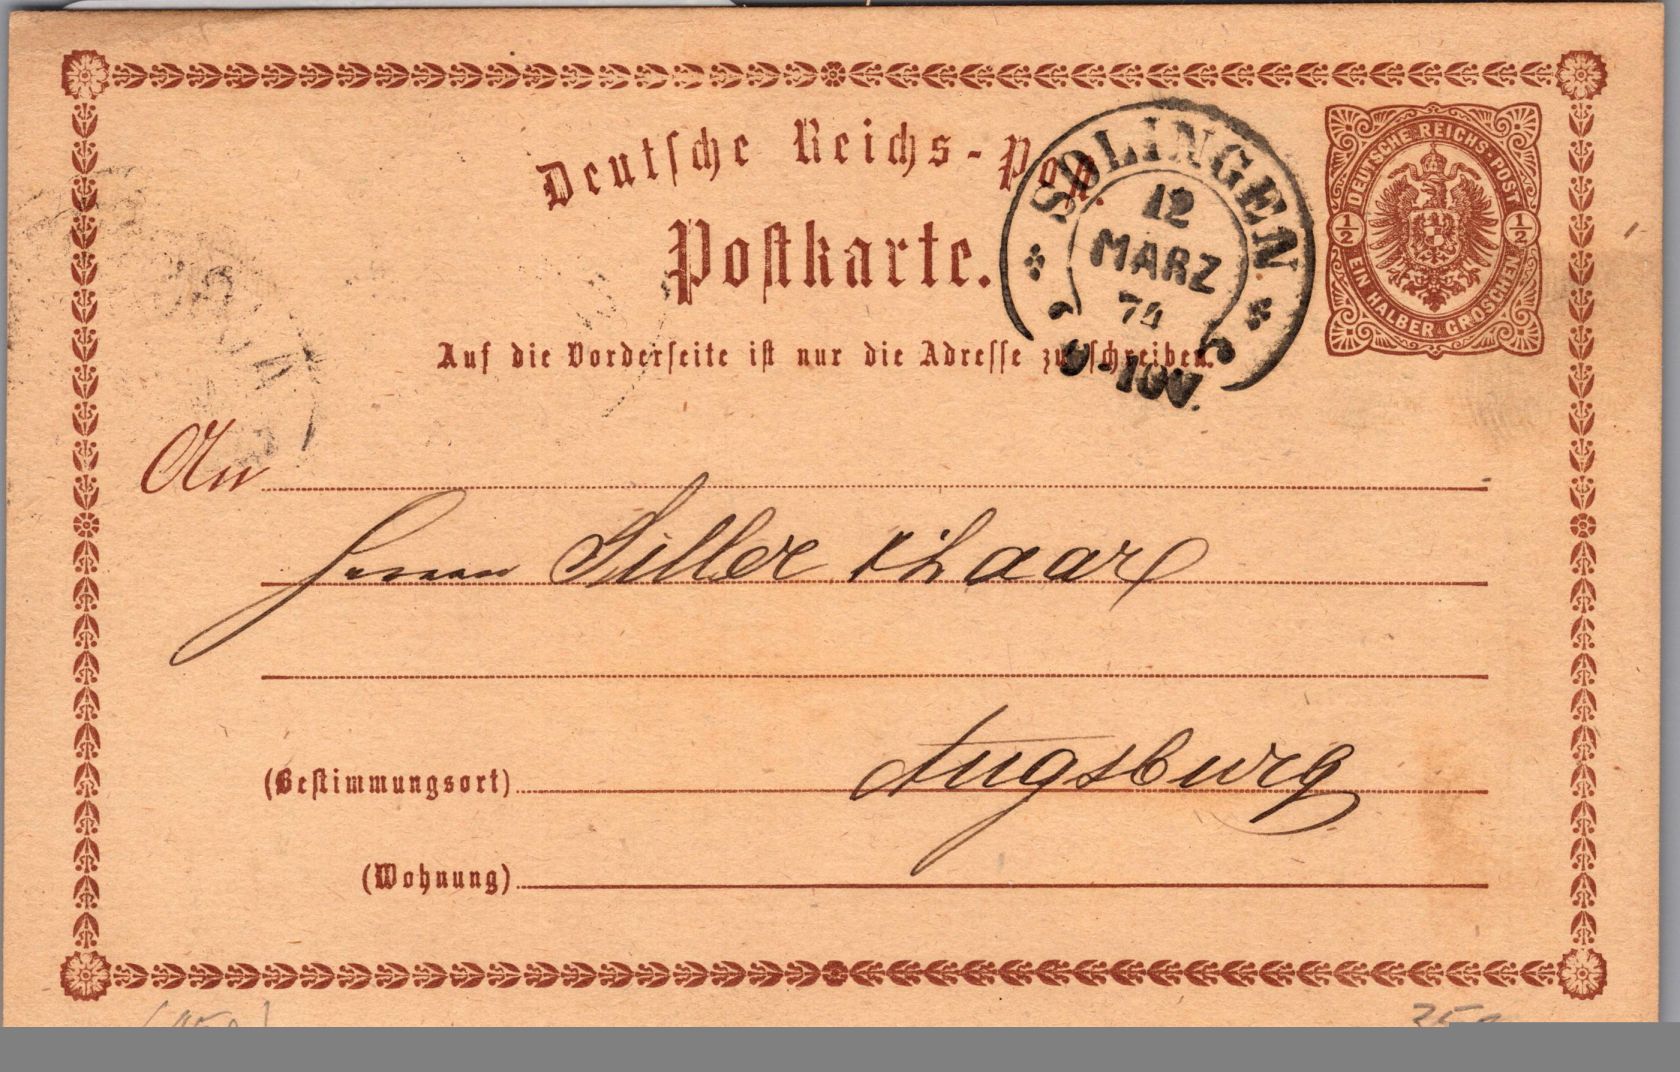 Deutsche Reichs-Post.
SOLINGEN.
12
MARZ
74
9-10V.
DEUTSCHE REICHS-POST
1/2
1/2
EIN HALBER GROSCHEN
Postkarte.
Auf die Vorderseite ist nur die Adresse zu schreiben.
An
Herren Siller & Laar
Augsburg
(Bestimmungsort)
(Wohnung)